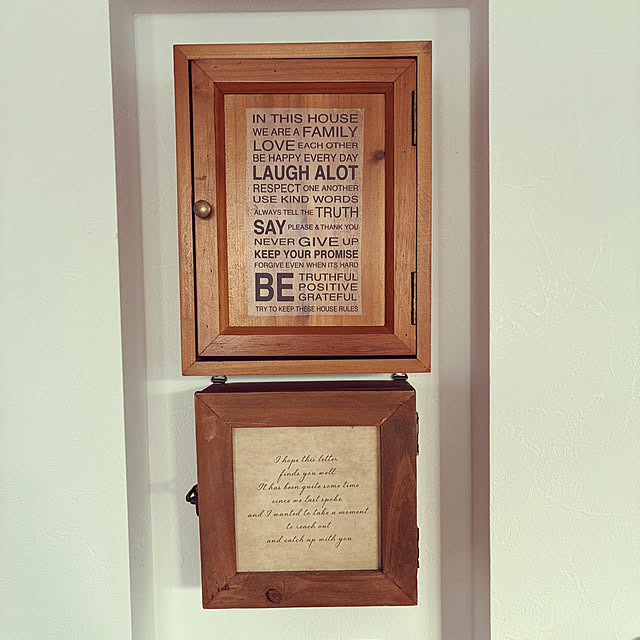 IN THIS HOUSE
WE ARE A FAMILY
LOVE EACH OTHER
BE HAPPY EVERY DAY
LAUGH ALOT
RESPECT ONE ANOTHER
USE KIND WORDS
ALWAYS TELL THE TRUTH
SAY PLEASE & THANK YOU
NEVER GIVE UP
KEEP YOUR PROMISE
FORGIVE EVEN WHEN ITS HARD
BE TRUTHFUL
POSITIVE
GRATEFUL
TRY TO KEEP THESE HOUSE RULES
I hope this letter
finds you well
It has been quite some time
since we last spoke
and I wanted to take a moment
to reach out
and catch up with you